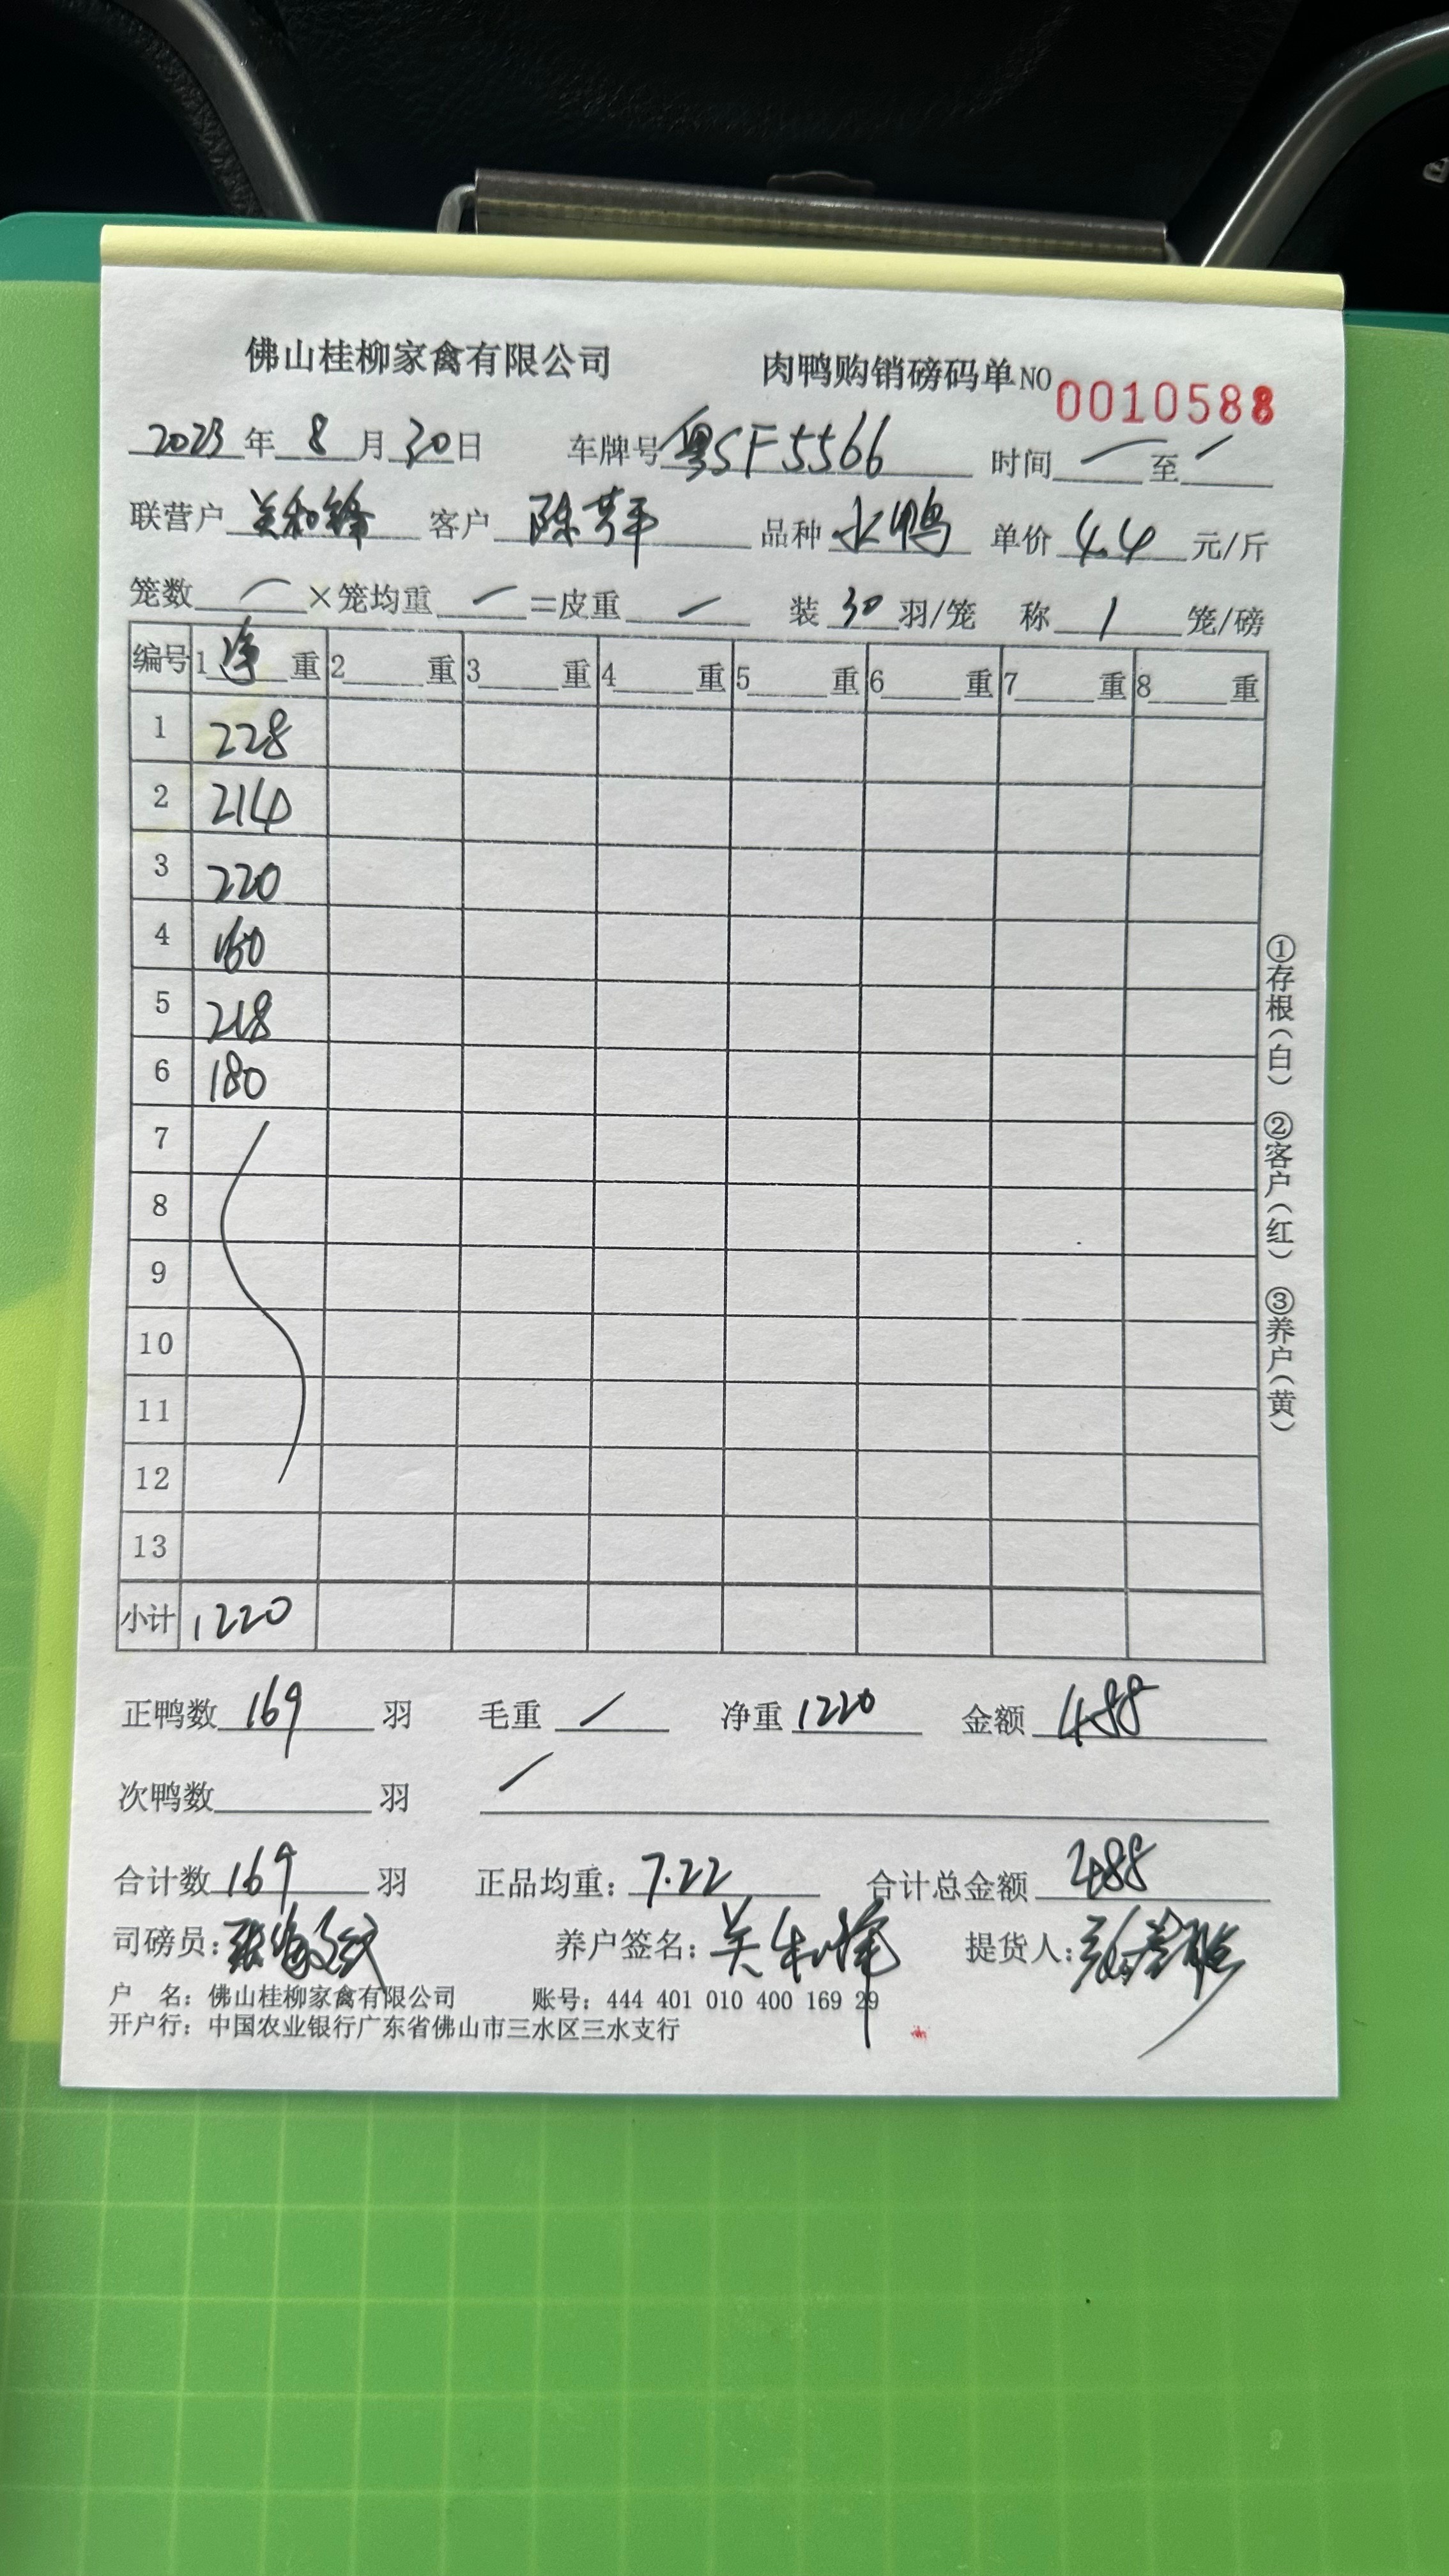 佛山桂柳家禽有限公司 肉鸭购销磅码单NO 0010588
2023年8月30日 车牌号粤SF5566 时间 一 至 一
联营户 关和锋 客户 品种 水鸭 单价 4.4 元/斤
笼数 一 ×笼均重 一 =皮重 一 装 30 羽/笼 称 1 笼/磅
编号 1净重 2 重 3 重 4 重 5 重 6 重 7 重 8 重
1 228
2 214
3 220
4 160
5 218
6 180
7
8
9
10
11
12
13
小计 1220
正鸭数 169 羽 毛重 / 净重 1220 金额 488
次鸭数 羽 /
合计数 169 羽 正品均重: 7.22 合计总金额 488
司磅员: 养户签名: 关和锋 提货人:
户 名: 佛山桂柳家禽有限公司 账号: 444 401 010 400 169 29
开户行: 中国农业银行广东省佛山市三水区三水支行
①存根(白) ②客户(红) ③养户(黄)